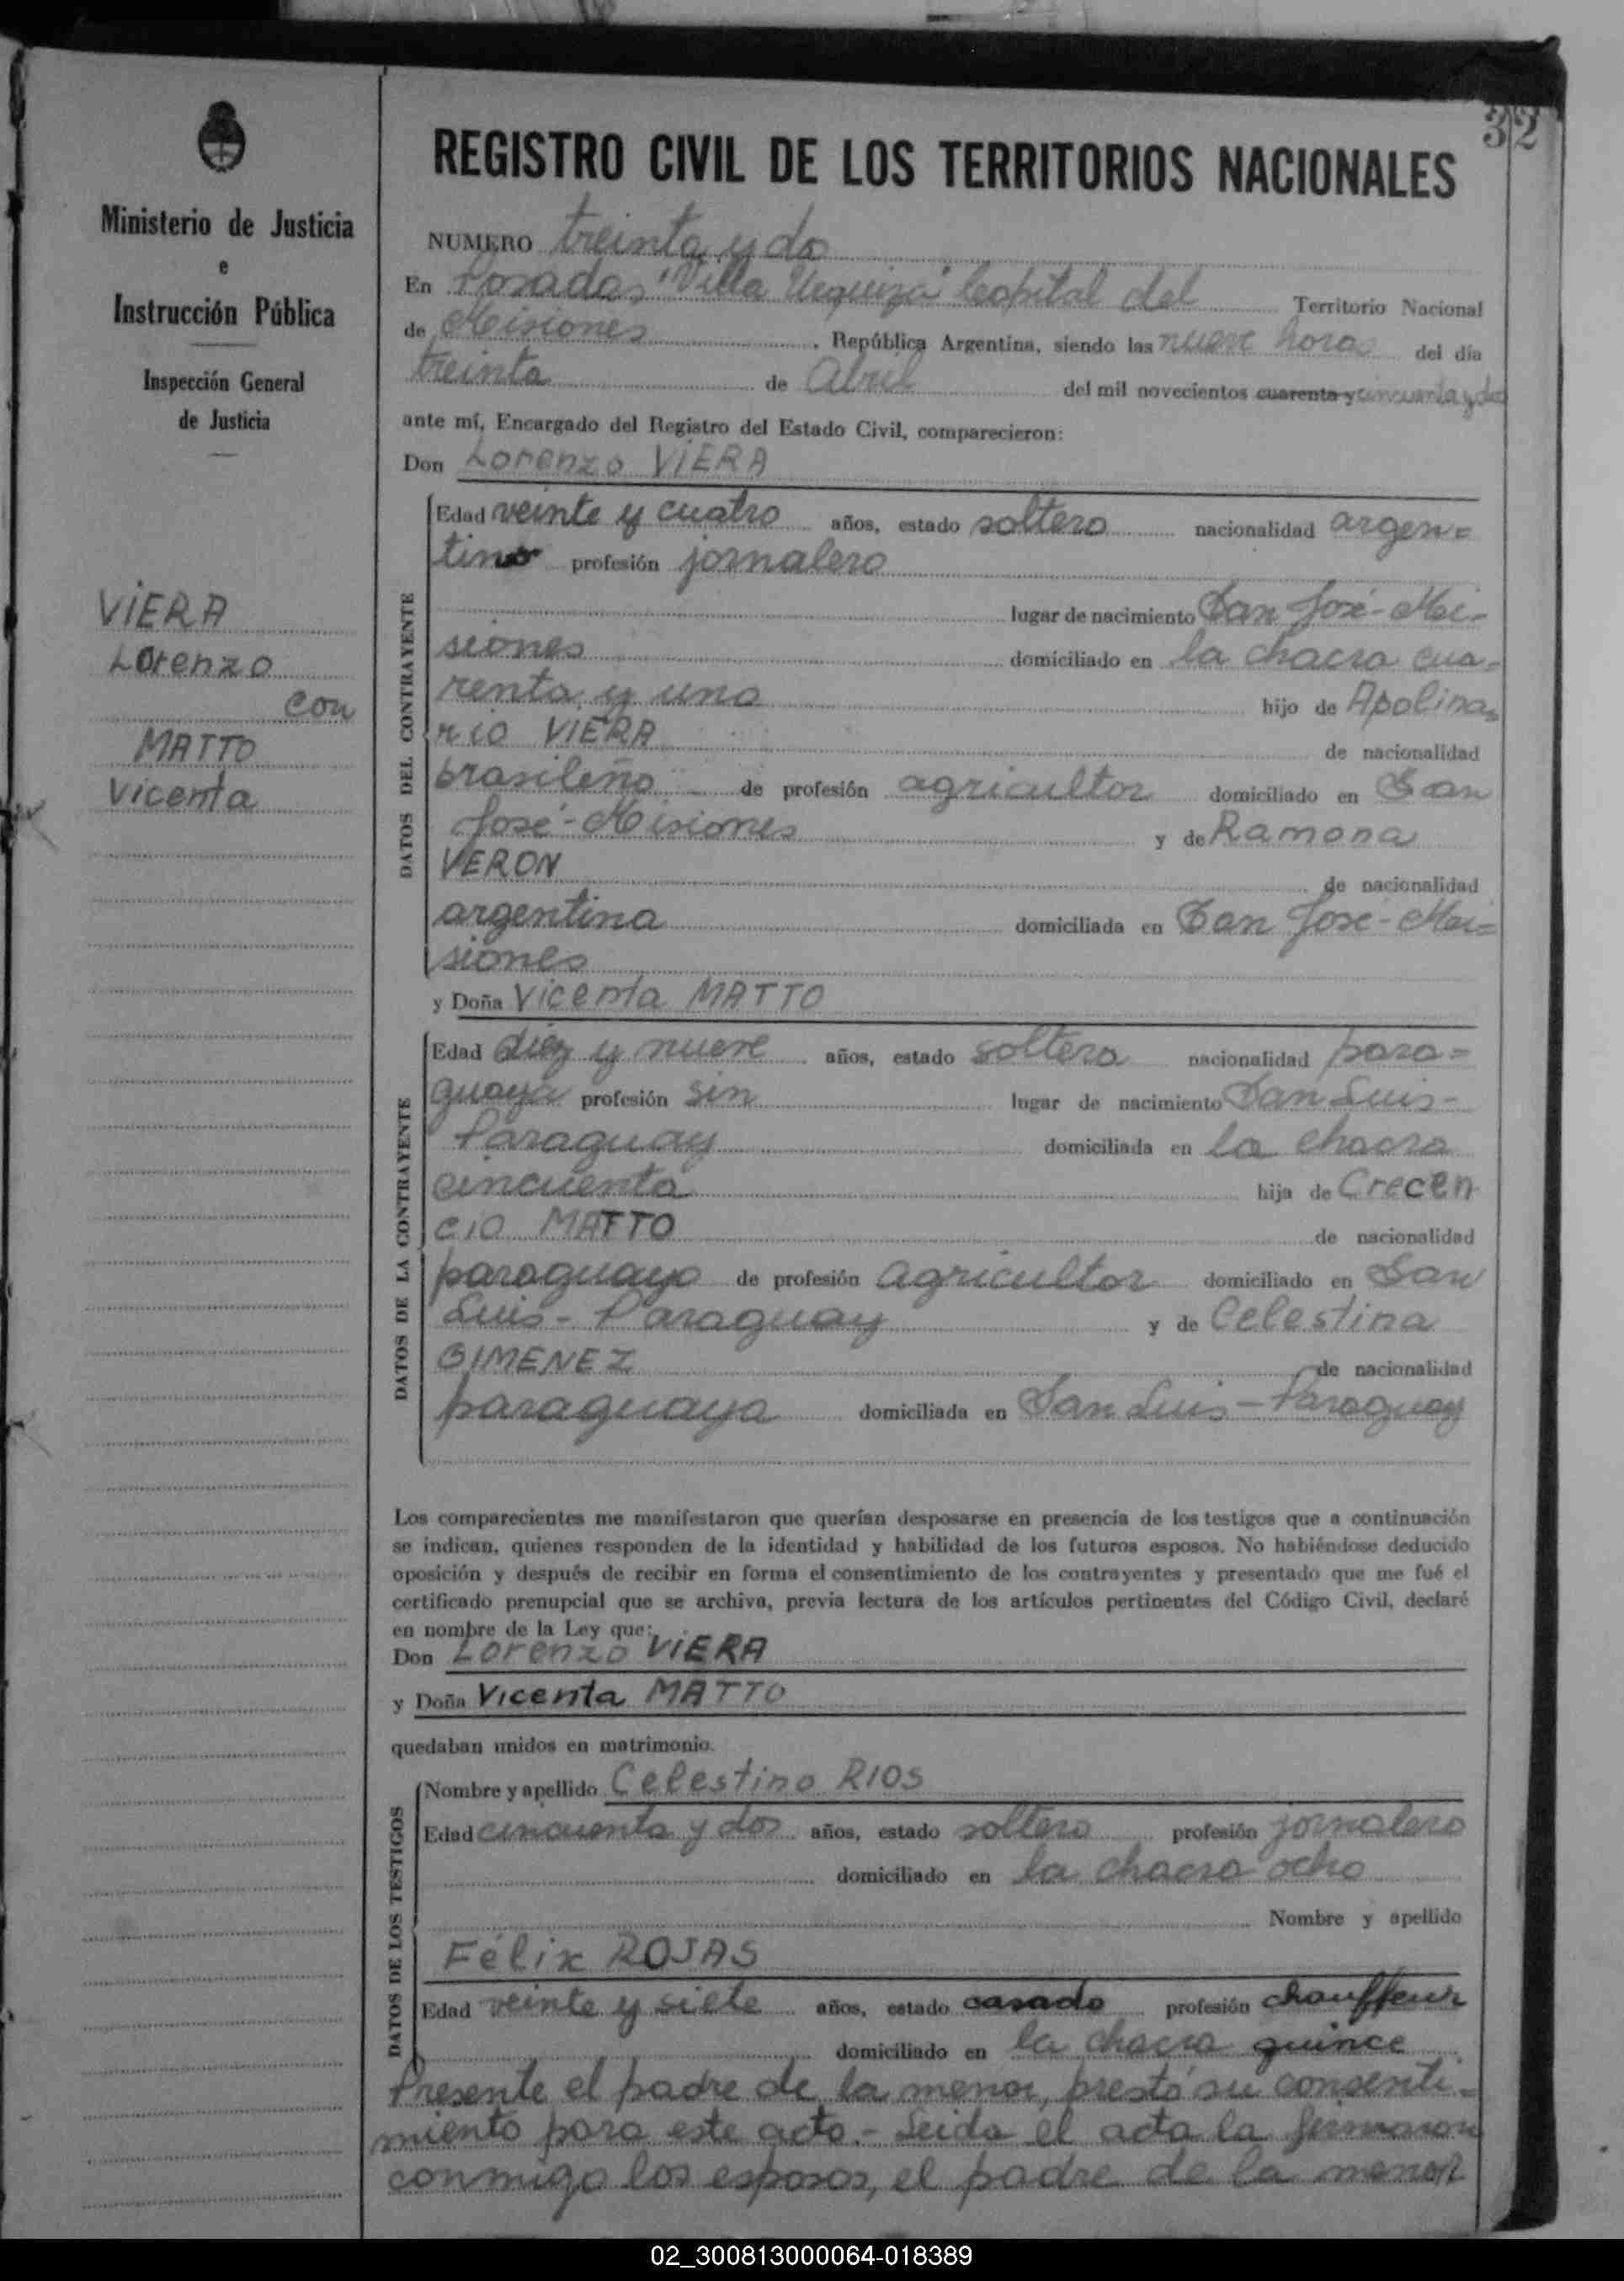 32
Ministerio de Justicia
e
Instrucción Pública
Inspección General
de Justicia
VIERA
Lorenzo
con
MATTO
Vicenta
REGISTRO CIVIL DE LOS TERRITORIOS NACIONALES
NUMERO treinta y do
En Posadas "Villa Urquiza" Capital del Territorio Nacional
de Misiones, República Argentina, siendo las nueve horas del día
treinta de Abril del mil novecientos cuarenta y cincuenta y dos
ante mí, Encargado del Registro del Estado Civil, comparecieron:
Don Lorenzo VIERA
DATOS DEL CONTRAYENTE
Edad veinte y cuatro años, estado soltero nacionalidad argen=
tino profesión jornalero
lugar de nacimiento San José - Mi-
siones domiciliado en la chacra cua-
renta y uno hijo de Apolina=
rio VIERA de nacionalidad
brasileño de profesión agricultor domiciliado en San
José - Misiones y de Ramona
VERON de nacionalidad
argentina domiciliada en San José - Mi=
siones
y Doña Vicenta MATTO
DATOS DE LA CONTRAYENTE
Edad diez y nueve años, estado soltera nacionalidad para=
guaya profesión sin lugar de nacimiento San Luis -
Paraguay domiciliada en la chacra
cincuenta hija de Crecen
cio MATTO de nacionalidad
paraguayo de profesión agricultor domiciliado en San
Luis - Paraguay y de Celestina
GIMENEZ de nacionalidad
paraguaya domiciliada en San Luis - Paraguay
Los comparecientes me manifestaron que querían desposarse en presencia de los testigos que a continuación
se indican, quienes responden de la identidad y habilidad de los futuros esposos. No habiéndose deducido
oposición y después de recibir en forma el consentimiento de los contrayentes y presentado que me fué el
certificado prenupcial que se archiva, previa lectura de los artículos pertinentes del Código Civil, declaré
en nombre de la Ley que:
Don Lorenzo VIERA
y Doña Vicenta MATTO
quedaban unidos en matrimonio.
DATOS DE LOS TESTIGOS
Nombre y apellido Celestino RIOS
Edad cincuenta y dos años, estado soltero profesión jornalero
domiciliado en la chacra ocho
Nombre y apellido
Félix ROJAS
Edad veinte y siete años, estado casado profesión chauffeur
domiciliado en la chacra quince
Presente el padre de la menor, prestó su consenti-
miento para este acto.- Leida el acta la firmaron
conmigo los esposos, el padre de la menor
02_300813000064-018389